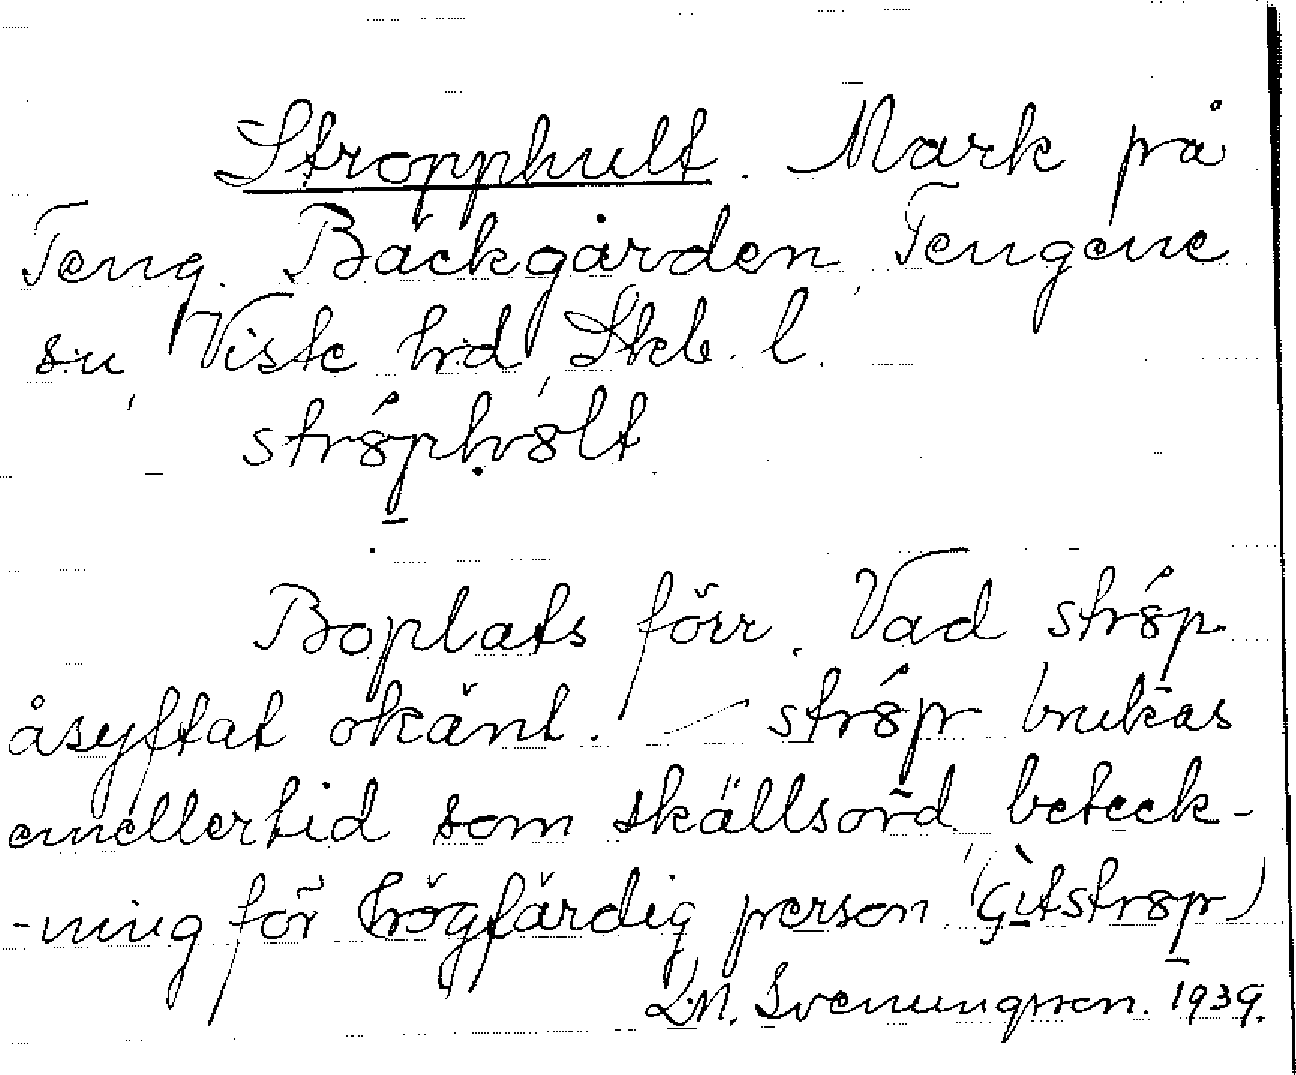 Stropphult. Mark på
Teng. Backgården, Tengene
sn, Viste hrd, Skb. l.
Boplats förr. Vad
åsyftat okänt. – brukas
emellertid som skällsord, beteck-
-ning för högfärdig person
L.M. Svenungsson. 1939.